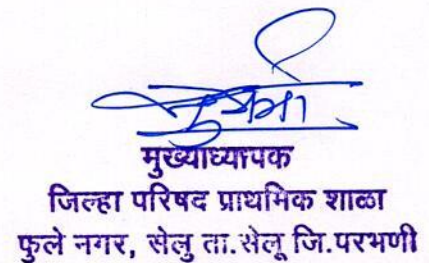 मुख्याध्यापक
जिल्हा परिषद प्राथमिक शाळा
फुले नगर, सेलु ता.सेलू जि.परभणी